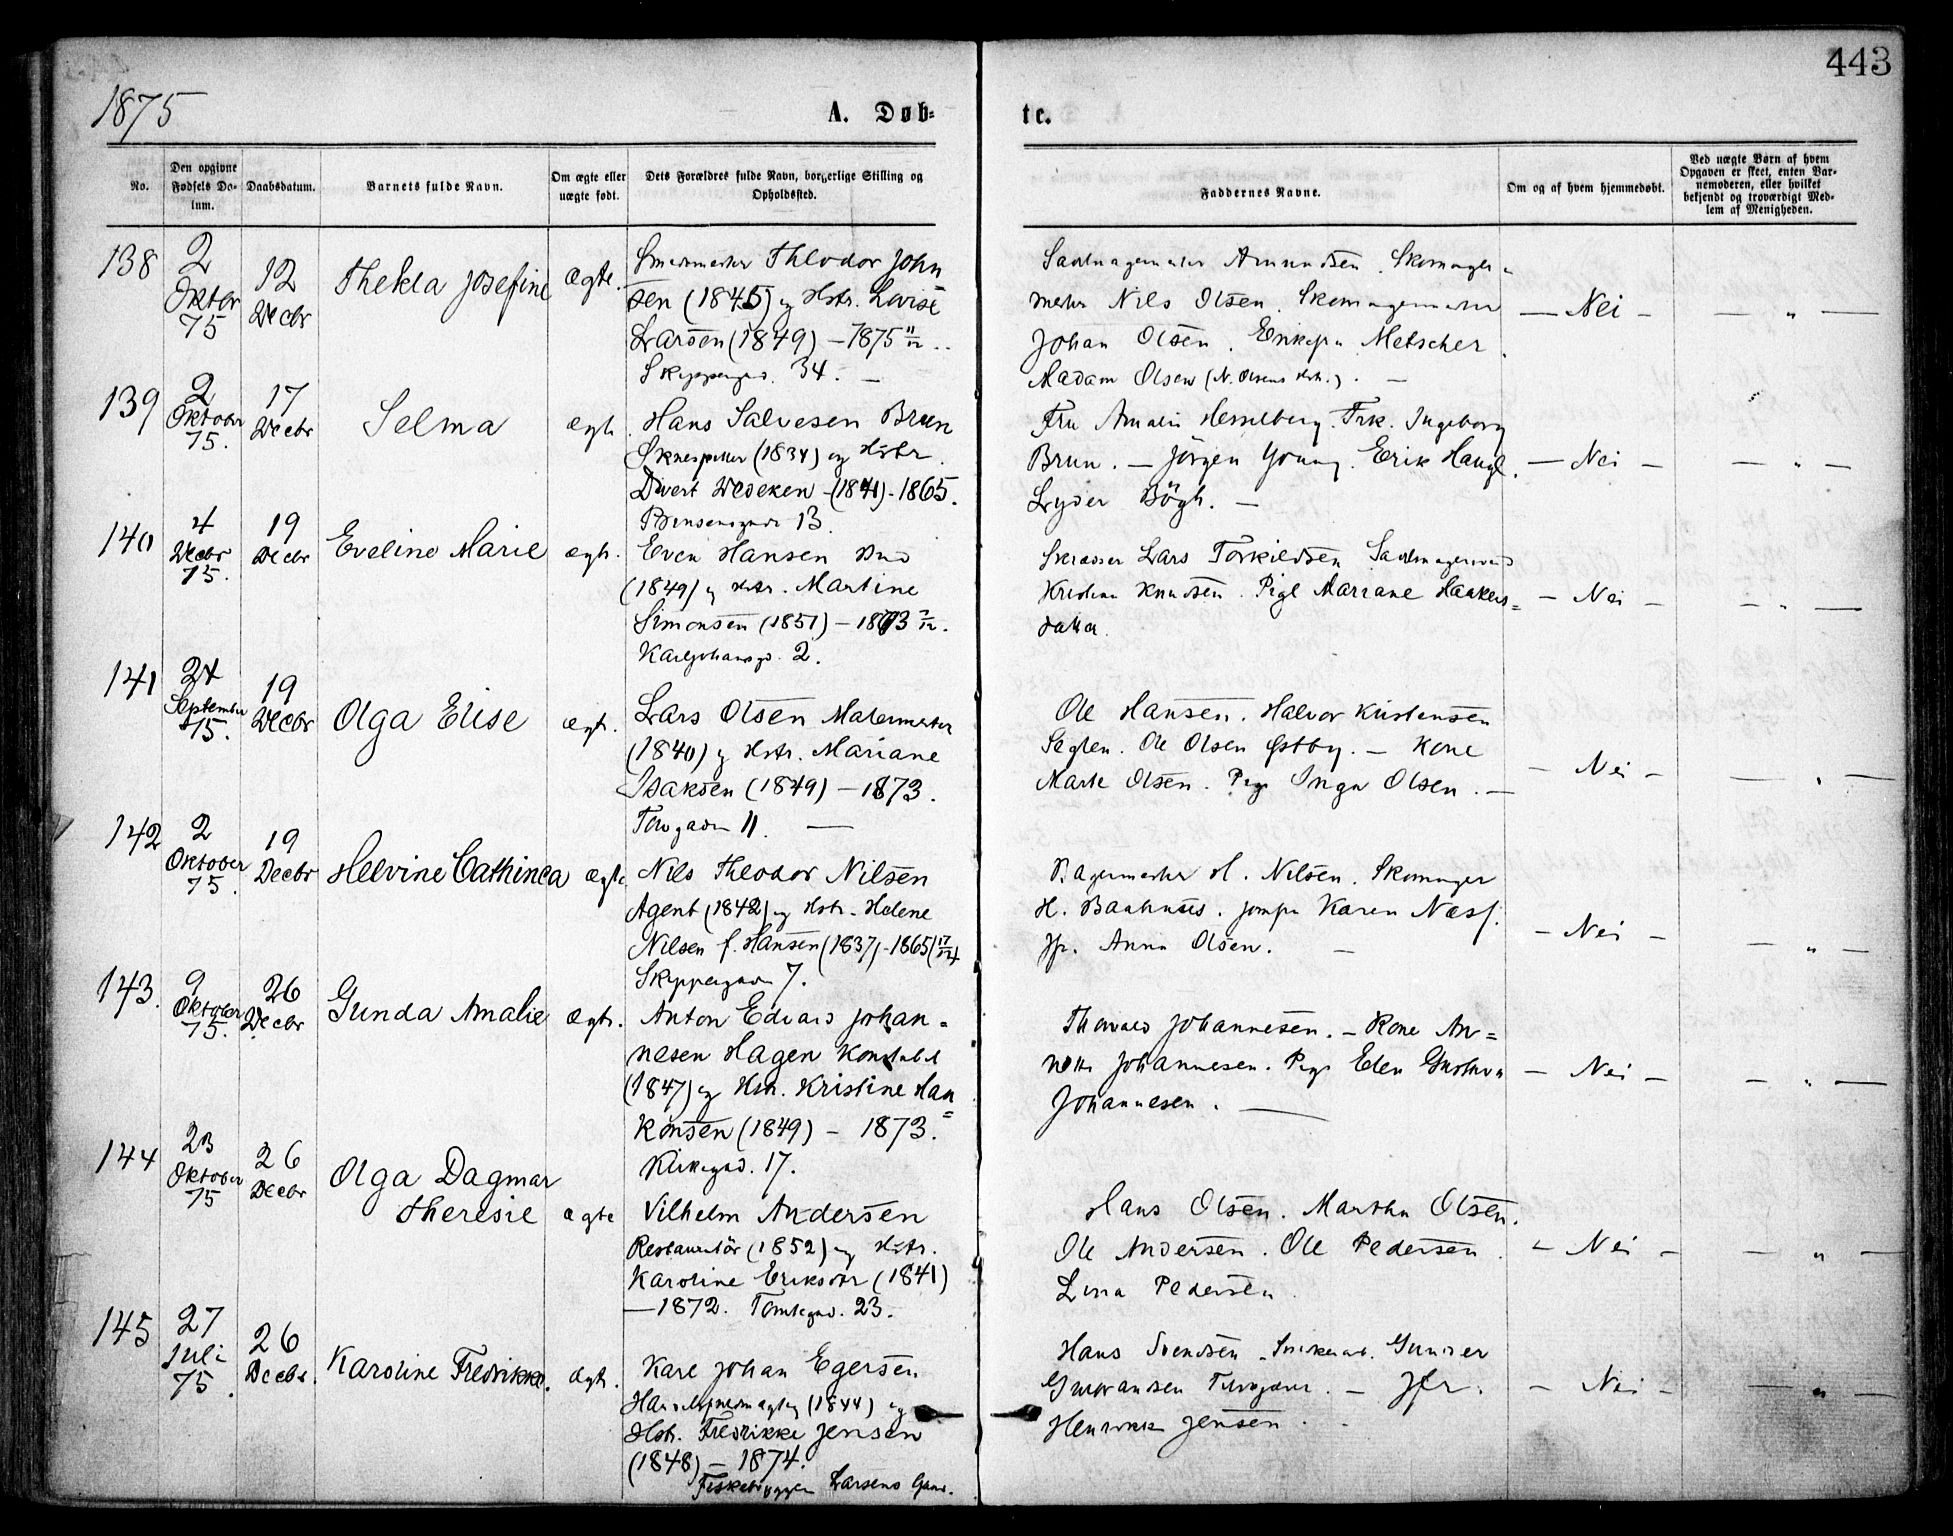 443
1875
A. Døb-
te.
No.
Den opgivne Fødsels Da-tum.
Daabsdatum.
Barnets fulde Navn.
Om ægte eller uægte født.
Dets Forældres fulde Navn, borgerlige Stilling og Opholdssted.
Faddernes Navne.
Om og af hvem hjemmedøbt.
Ved uægte Børn af hvem Opgaven er skeet, enten Bar-nemoderen, eller hvilket bekjendt og troværdigt Med-lem af Menigheden.
138
2 Oktbr 75
12 Decbr
Thekla Josefine
ægte.
Theodor John
sen (1845) og Hstr. Lovise
Larsen (1849) – 1875 11/12
Skippergd. 34. –
Sadelmagermester Amundsen. Skomager
mester Nils Olsen. Skomagermester
Johan Olsen. Enkefru Metscher.
Madam Olsen (N. Olsens Hstr.). –
– Nei –
– " –
139
2 Oktober 75.
17 Decbr
Selma
ægte
Hans Salvesen Brun
Skuespiller (1834) og Hstr.
Divert Wedeken – (1841) – 1865.
13.
Fru Amalie Hesselberg. Frk. Ingeborg
Brun. – Jörgen Young. Erik Haugl.
Lyder Bögh. –
– Nei –
– " –
140
4 Decbr 75.
19 Decbr
Eveline Marie
ægte.
Even Hansen Bud
(1849) og Hstr. Martine
Simonsen (1851) – 1873
Karljohansgd. 2.
Skrædder Lars Torkildsen Sadelmagersvend
Kristian Knudsen. Pige Mariane Haakens=
datter.
– Nei –
– " –
141
24 September 75.
19 Decbr
Olga Elise
ægte.
Lars Olsen Malermester
(1840) og Hstr. Mariane
Isaksen (1849) – 1873.
Torvgaden 11. –
Ole Hansen. Halvor Kristensen
Ole Olsen Østby. – Kone
Marte Olsen. Pige Inga Olsen. –
– Nei –
– " –
142
2 Oktober 75.
19 Decbr
Helvine Cathinca
ægte
Nils Theodor Nilsen
Agent (1842) og Hstr. Helene
Nilsen f. Hansen (1837) – 1865 (17/12)
Skippergaden 7.
Bagermester H. Nilsen. Skomager
H. Baahuus. Jomfru Karen Næss.
Jfr. Anna Olsen. –
– Nei –
– " –
143.
9 Oktober 75.
26 Decbr
Gunda Amalie
ægte.
Anton Edvard Johan=
nesen Hagen Konstabel
(1847) og Hstr. Kristine Haa=
konsen (1849) – 1873.
Kirkegad. 17.
Thorvald Johannesen. – Kone An=
nette Johannesen. Pige Elen Gustava
Johannesen. –
– Nei –
– " –
144
23 Oktober 75
26 Decbr
Olga Dagmar
Theresie
ægte
Vilhelm Andersen
Restauratör (1852) og Hstr.
Karoline Eriksdtr (1841)
– 1872. Tomtegad. 23.
Hans Olsen. Martha Olsen.
Ole Andersen. Ole Pedersen.
Lina Pedersen.
– Nei –
– " –
145
27 Juli 75.
26 Decbr.
Karoline Fredrikke.
ægte.
Karl Johan Egersen
(1844) og
Hstr. Fredrikke Jensen
(1848) – 1874.
Fiskebryggen Larsens Gaard.
Hans Svendsen. Gunder
Gulbrandsen – Jfr.
Henrikke Jensen.
– Nei –
– " –